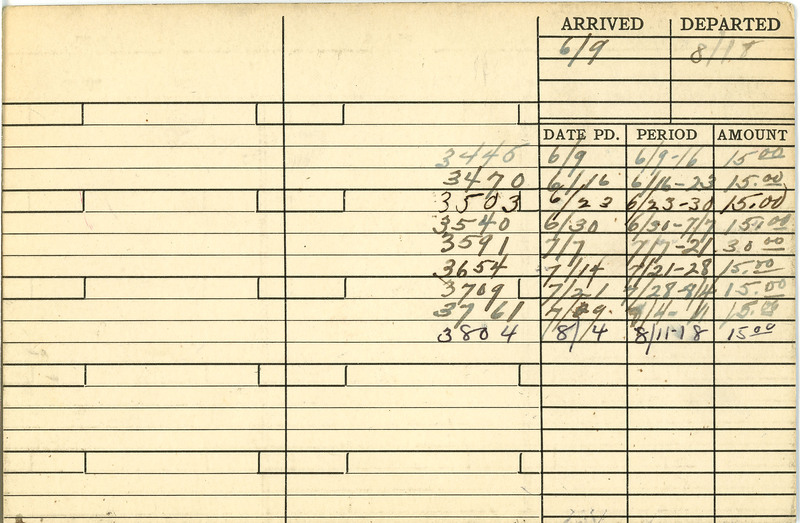 ARRIVED DEPARTED
6/9 8/18
DATE PD. PERIOD AMOUNT
3445 6/9 6/9-16 15.00
3470 6/16 6/16-23 15.00
3503 6/23 6/23-30 15.00
3540 6/30 6/30-7/7 15.00
3591 7/7 7/7-21 30.00
3654 7/14 7/21-28 15.00
3709 7/21 7/28-8/4 15.00
3761 7/29 8/4-11 15.00
3804 8/4 8/11-18 15.00